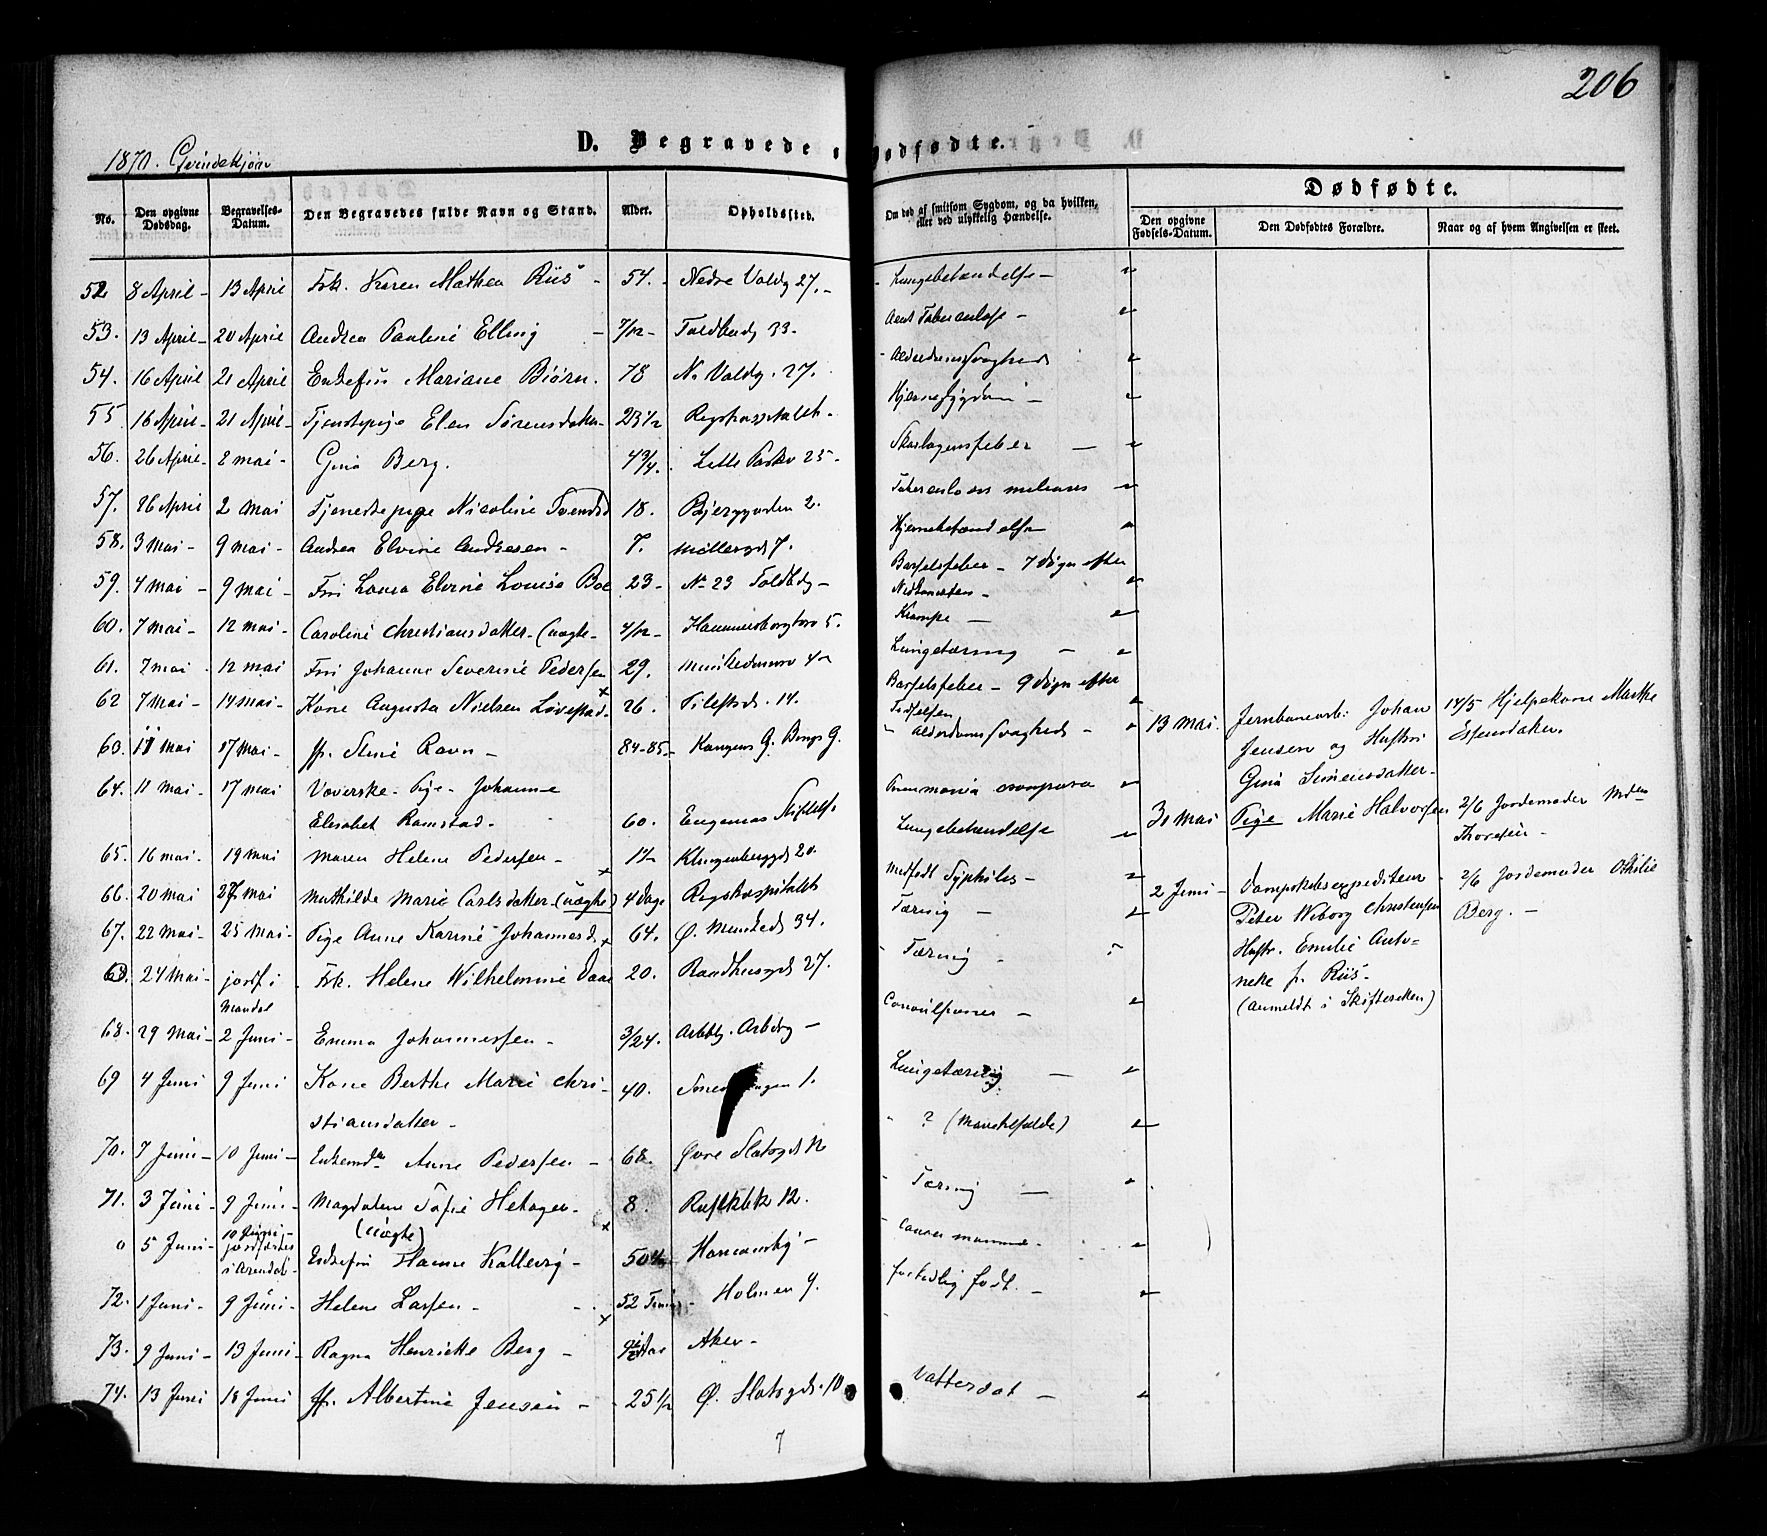 206
1870. Qvindekjøn
D. Begravede
Dødfødte.
No.
Den opgivne Dødsdag.
Begravelses-Datum.
Den Begravedes fulde Navn og Stand.
Alder.
Opholdssted.
Om død af smitsom Sygdom, og da hvilken, eller ved ulykkelig Hændelse.
Dødfødte.
Den opgivne Fødsels-Datum.
Den Dødfødtes Forældre.
Naar og af hvem Angivelsen er skeet.
52 8 April - 13 April Frk. Karen Mathea Riis - 54. - Nedre Voldg 27. - Lungebetændelse -
53. 13 April - 20 April Andrea Pauline Elling - 7/12 - Toldbodg 33.
54. 16 April 21 April Enkefru Mariane Biørn. 78 N. Voldg. 27. - Alderdomssvaghed
55 16 April - 21 April - Tjenstepige Elen Sørensdatter - 23 1/2 Rigshospitalet. Hjernesygdom -
56. 26 April - 2 mai - Gina Berg. 4 3/4. Lille 25 - Skarlagensfeber -
57. 26 April 2 mai Tjenestepige Nicoline 18. Bjerggaden 2.
58. 3 mai - 9 mai - Andrea Elvine Andresen - 7. Møllergd 7. Hjernebetændelse
59. 4 mai - 9 mai - Fru Laura Elvine Louise Boe 23 - No 23 Toldbdg - Barselsfeber - 7 døgn efter
Nedkomsten -
60. 7 mai - 12 mai - Caroline Christiansdatter - (uægte - 4/12 - Hammersborgtorv 5. Krampe -
61. 7 mai - 12 mai Fru Johanne Severine Pedersen 29. Lungetæring -
62 7 mai - 14 mai - Kone Augusta Nielsen Løvestad - 26. Pilestd. 14. Barselsfeber - 9 døgn efter
Fødselen
63. 11 mai 17 mai - fr. Stine Ravn - 84-85 - Kongens G. Alderdomssvaghed -
64. 11 mai - 17 mai Væverske - Pige - Johanne
Elisabet Ramstad. 60. Eugenias Stiftelse
65. 16 mai - 19 mai Maren Helene Pedersen - Klingenberggd 20. Lungebetændelse
66. 20 mai 27 mai Mathilde Marie Carlsdatter - (uægte) 4 dage Rigshospitalet Medfødt Syphiles -
67. 22 mai - 25 mai - Pige Anne Karine Johannesd. 64. Ø. 34. Tæring -
24 mai - jordf i
Mandal Frk. Helene Wilhelmine Daae 20. Raadhusgd 27. Tæring -
68. 29 mai - 2 Juni - Emma Johannessen - 3/24. Arbdg - Convulsioner -
69 4 Juni 9 Juni Kone Berthe Marie Chri-
stiansdatter - 40. 1. Lungetæring -
70. 7 Juni - 10 Juni - Enkemd. Anne Pedersen - 68. Øvre Slotsgd ? (Mavetilfælde)
71. 3 Juni - 9 Juni - Magdalene Sofie Hetager -
(uægte) 8. 12. Tæring -
5 Juni - 10 Juni -
jordfæstes
i Arendal - Enkefru Hanne Kallevig - 50 Homansby - Cancer mammæ -
72. 1 Juni - 9 Juni - Helene Larsen - 52 Timer - Holmen 9. fortidlig født. -
73. 9 Juni - 13 Juni - Ragna Henriette Berg - Aker -
74. 13 Juni 18 Juni fr. Albertine Jensen - 25 1/2 Ø. Slotsgd. 10 Vattersot -
13 mai. Jernbanearb. Johan
Jensen og Hustru
Gina Simensdatter - 14/5 Hjelpekone Marthe
30 mai Pige Marie Halvorsen 2/6 Jordemoder
Thoresen -
2 Juni - Dampskibsexpediteur -
Peter Wiborg Christensen
Hustr. Emilie Anto-
nette f. Riis -
(Anmeldt i Skifteretten) 2/6 Jordemoder Othilie
Berg. -
7